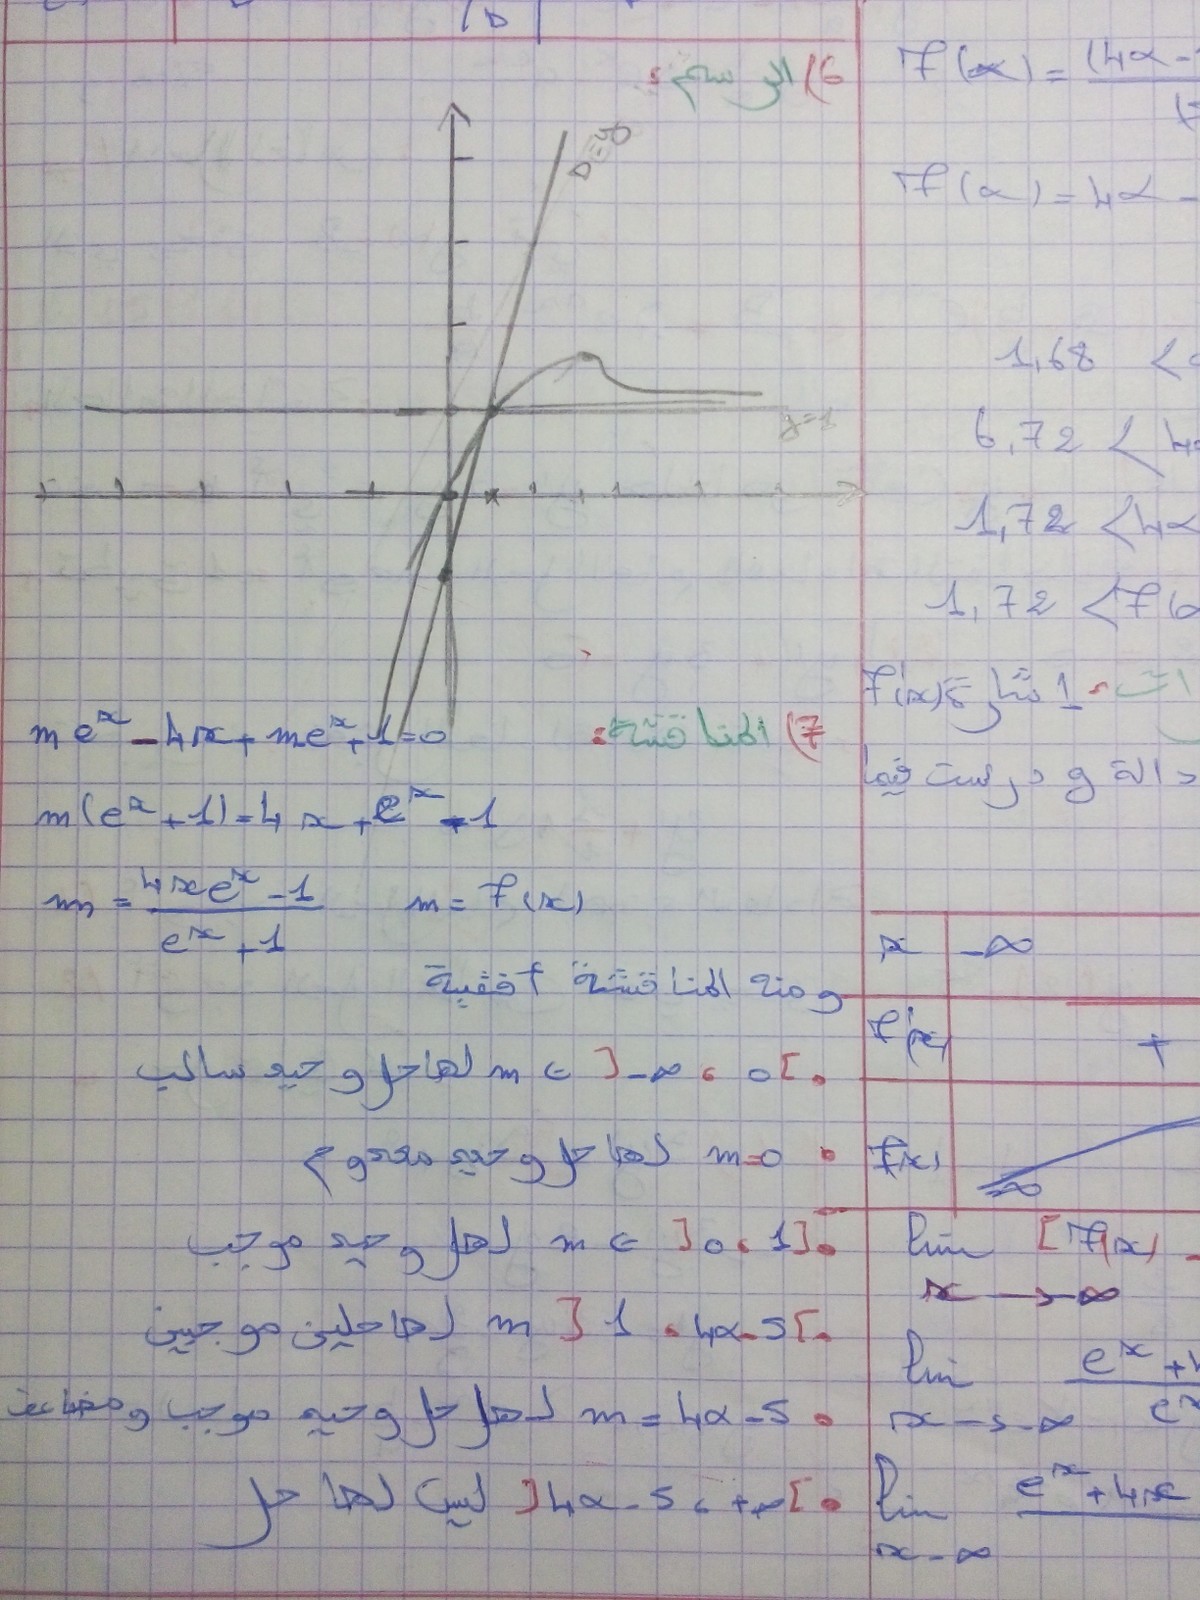 6) الرسم:
D=y
y=1
7) المناقشة:
me^x - 4x + me^x + 1 = 0
m(e^x + 1) = 4x + e^x - 1
m = (4xe^x - 1)/(e^x + 1) m = F(x)
ومنه المناقشة أفقية
• m ∈ ]-∞ ، 0[ لها حل وحيد سالب
• m=0 لها حل وحيد معدوم
• m ∈ ]0 ، 1] لها حل وحيد موجب
• m ]1 ، 4α-5[ لها حلين موجبين
• m = 4α-5 لها حل وحيد موجب ومضاعف
• ]4α-5 ، +∞[ ليس لها حل
F(x) = (4α-
F(α) = 4α -
1,68 <
6,72 < 4
1,72 < 4α
1,72 < F(α
دالة g درست فيما
x -∞
F'(x) +
F(x) -∞
lim [F(x) -
x → -∞
lim e^x + 4
x → -∞ e^x
lim e^x + 4x
x → -∞